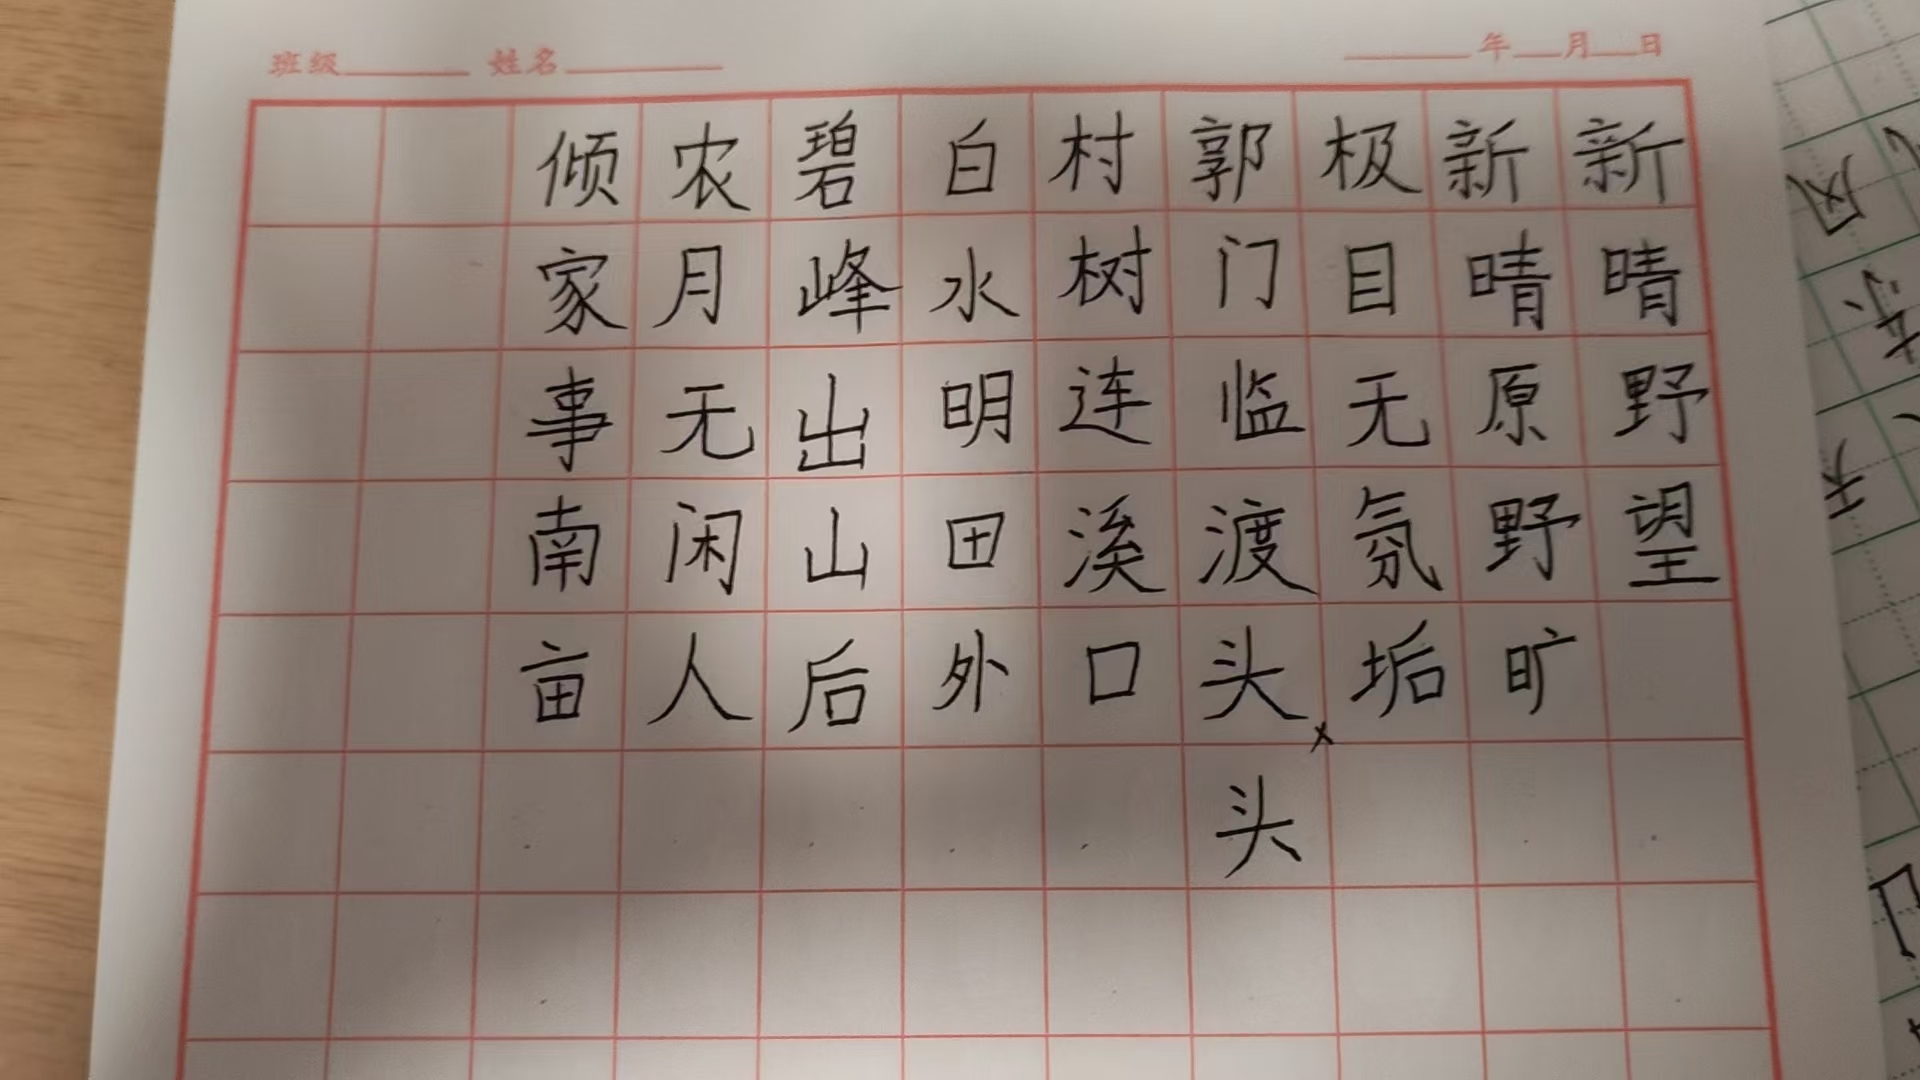 班级 姓名 年 月 日
新晴野望
新晴原野旷
极目无氛垢
郭门临渡头
头
村树连溪口
白水明田外
碧峰出山后
农月无闲人
倾家事南亩
风